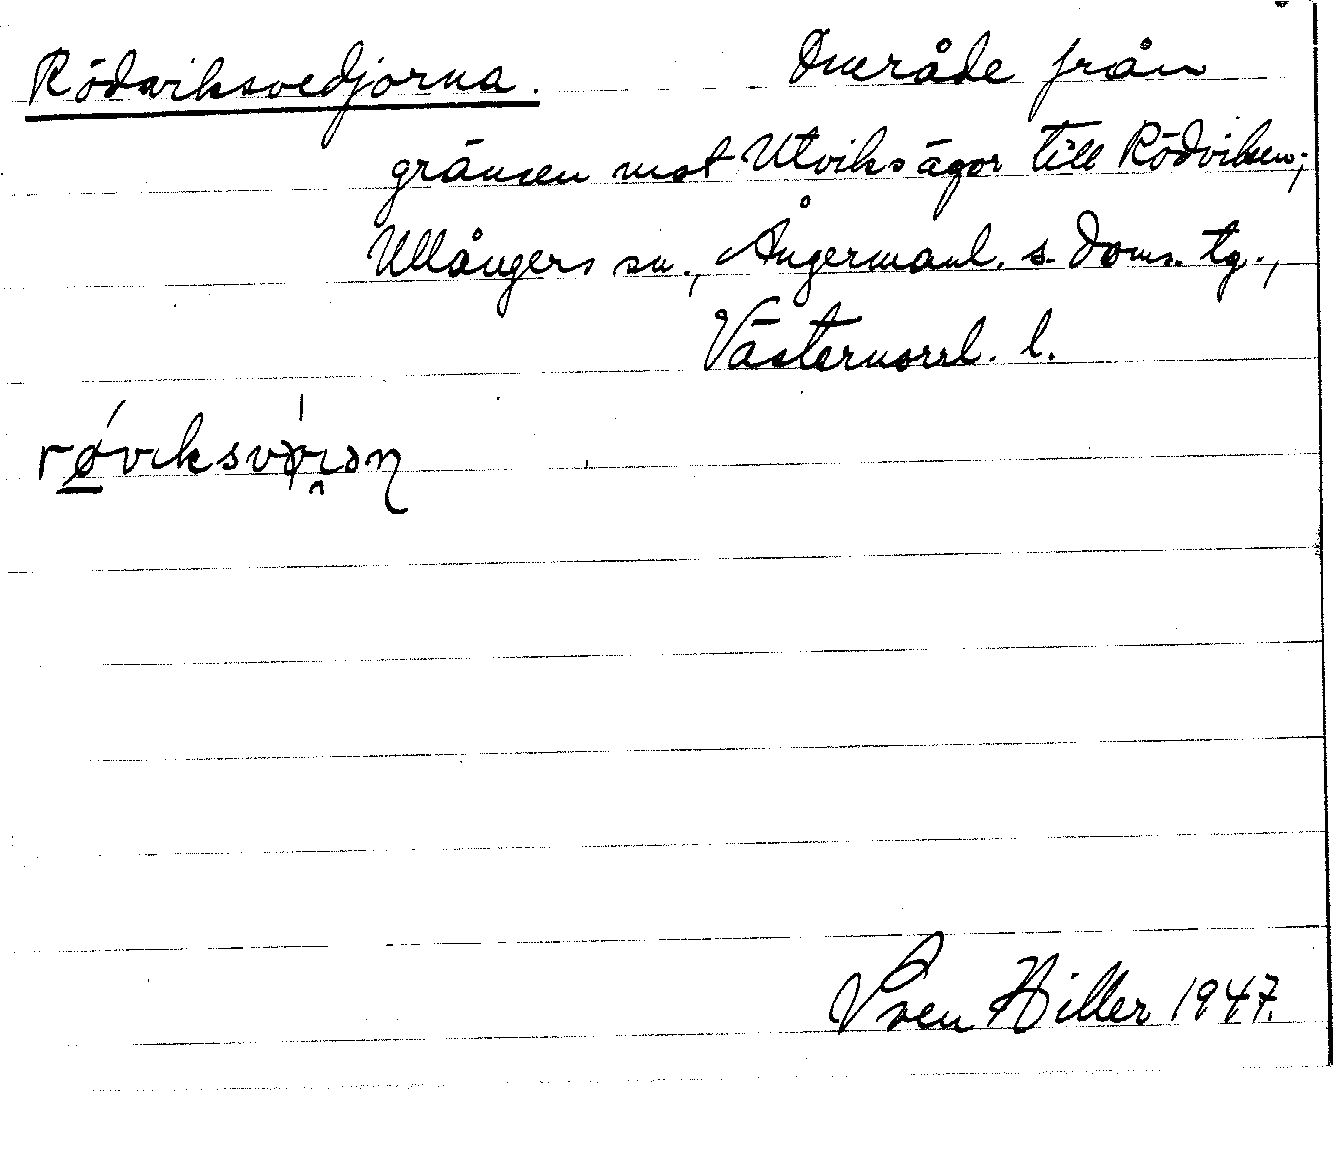 Rödviksvedjorna. Område från
gränsen mot Utviks ägor till Rödviken;
Ullångers sn., Ångermanl. s. doms. tg.,
Västernorrl. l.
Sven Hiller 1947.